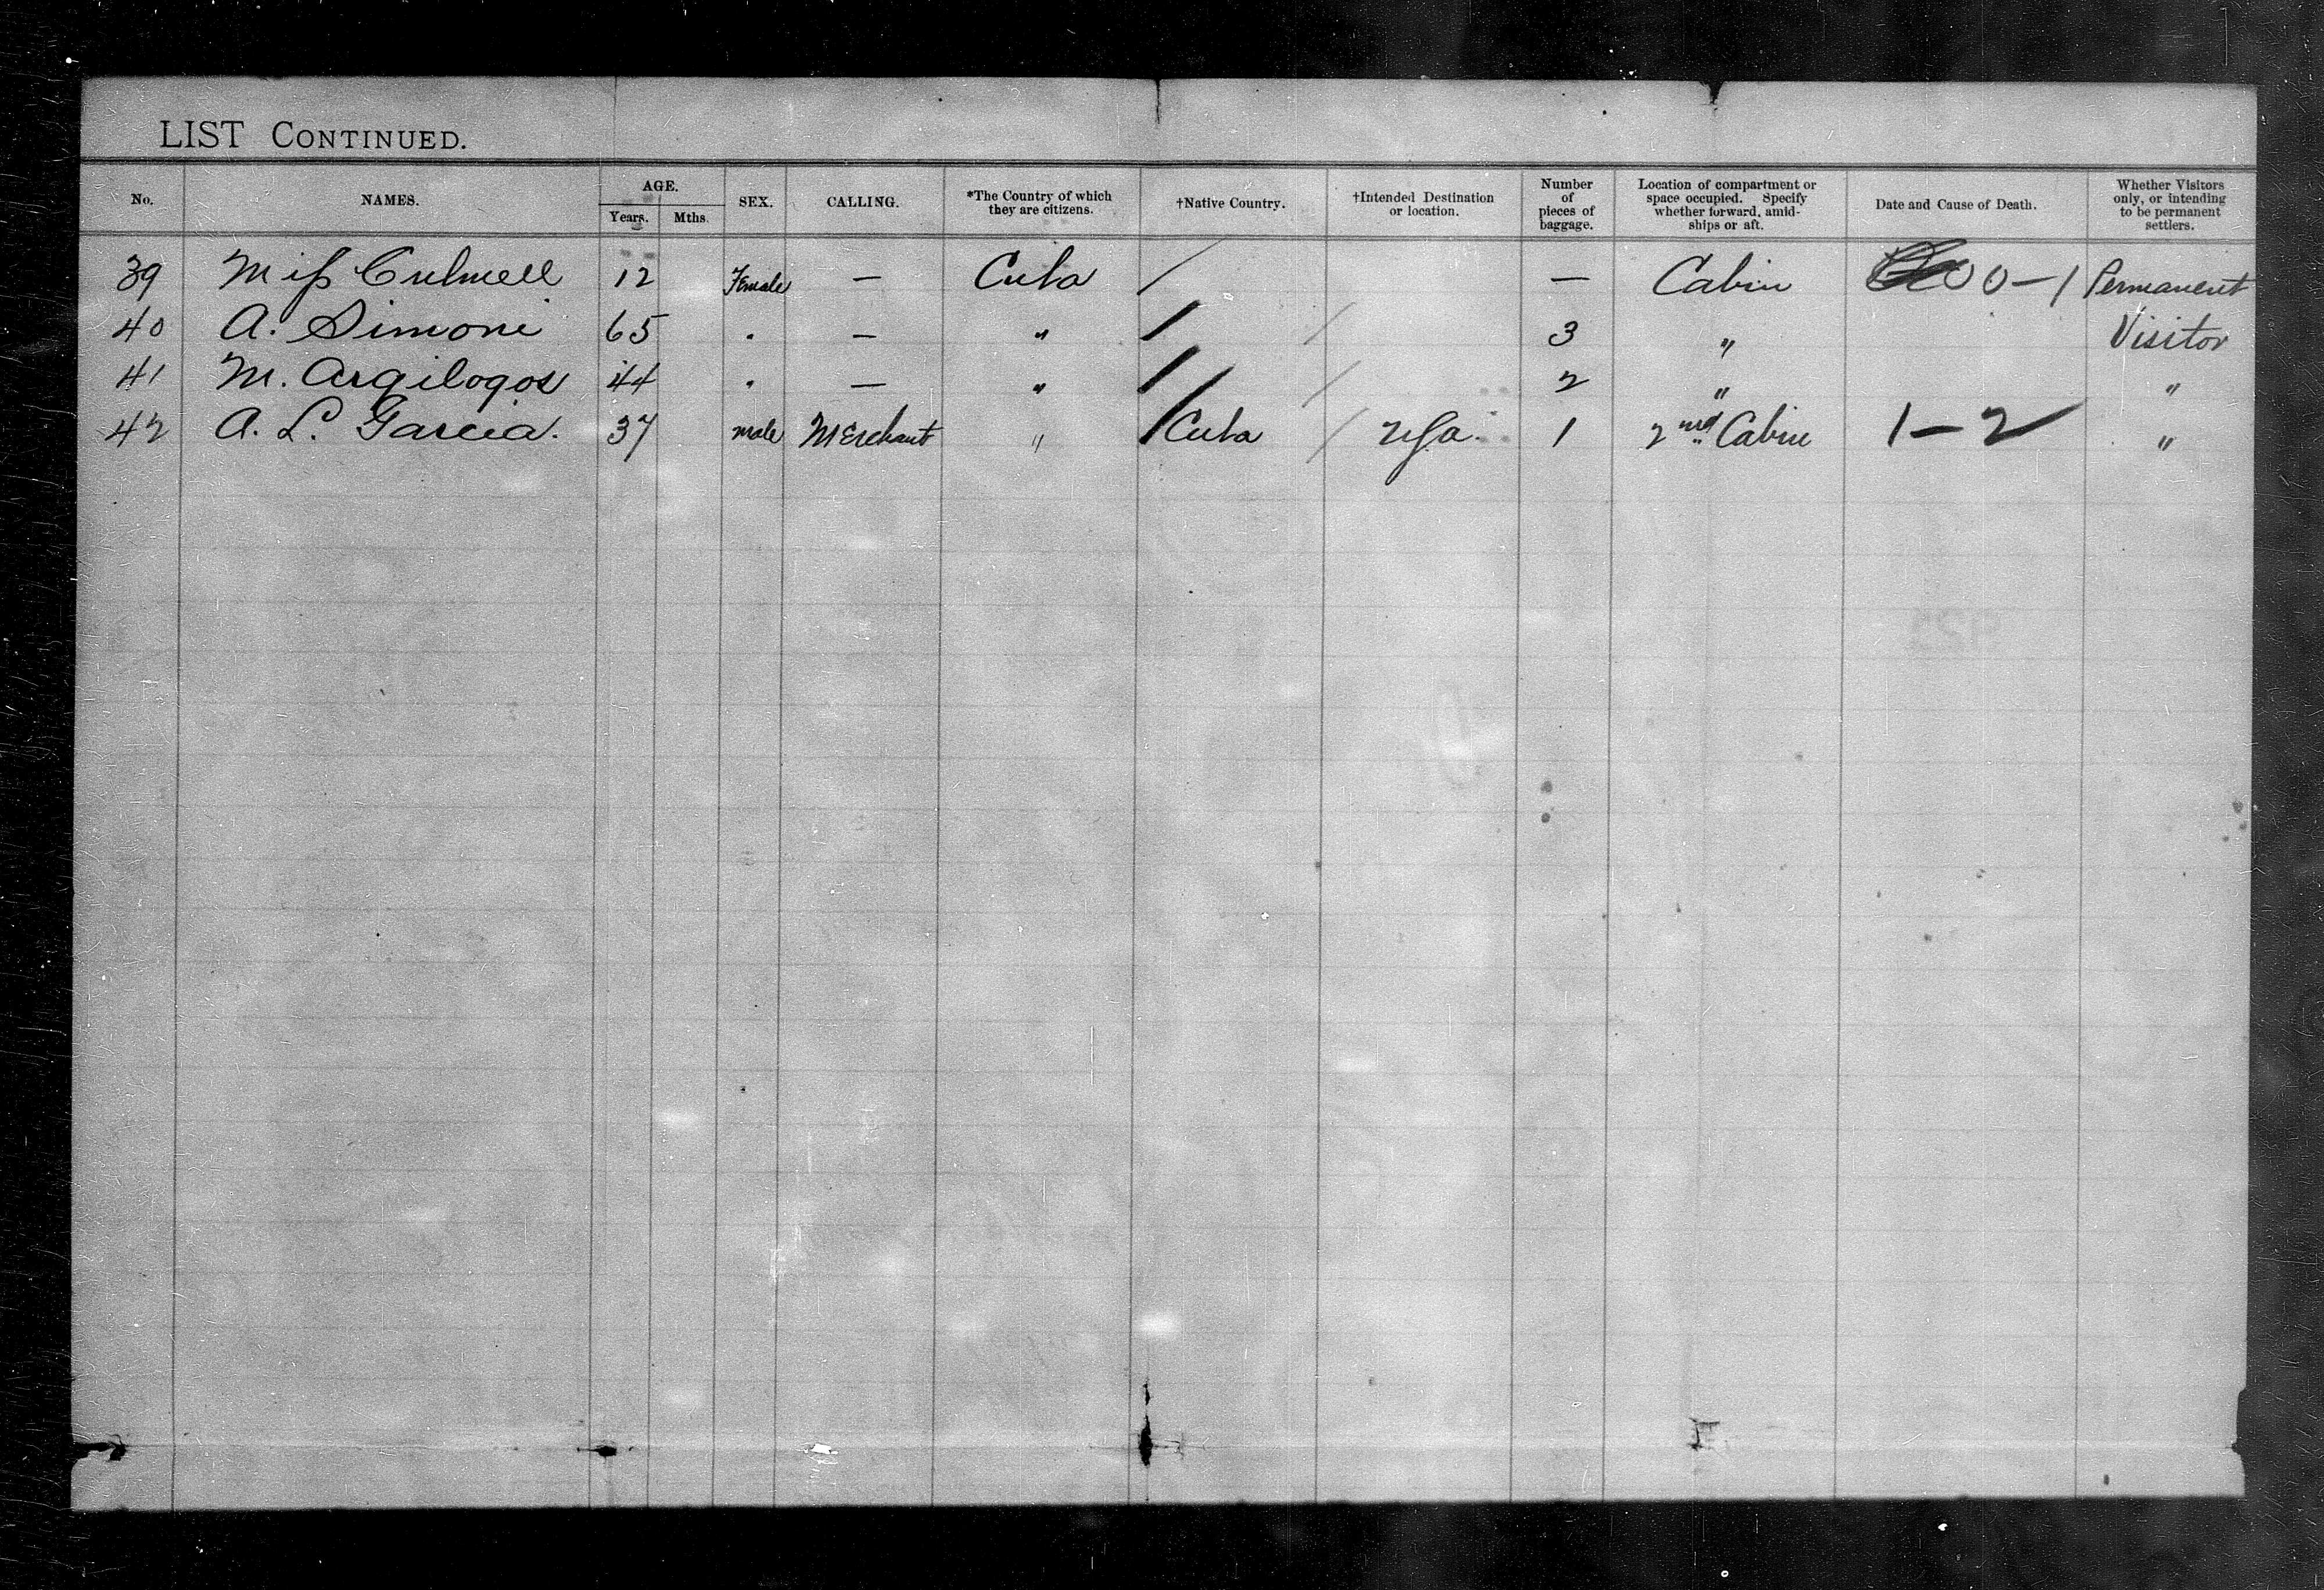 LIST CONTINUED.
No. NAMES. AGE. Years. Mths. SEX. CALLING. *The Country of which they are citizens. †Native Country. †Intended Destination or location. Number of pieces of baggage. Location of compartment or space occupied. Specify whether forward, amidships or aft. Date and Cause of Death. Whether Visitors only, or intending to be permanent settlers.
39 Miss Culmell 12 Female — Cuba / — Cabin 00-1 Permanent
40 A. Simoni 65 " — " / / 3 " Visitor
41 M. Argilogos 44 " — " / / 2 " "
42 A. L. Garcia. 37 male Merchant " / Cuba / 1 2nd Cabin 1-2 "